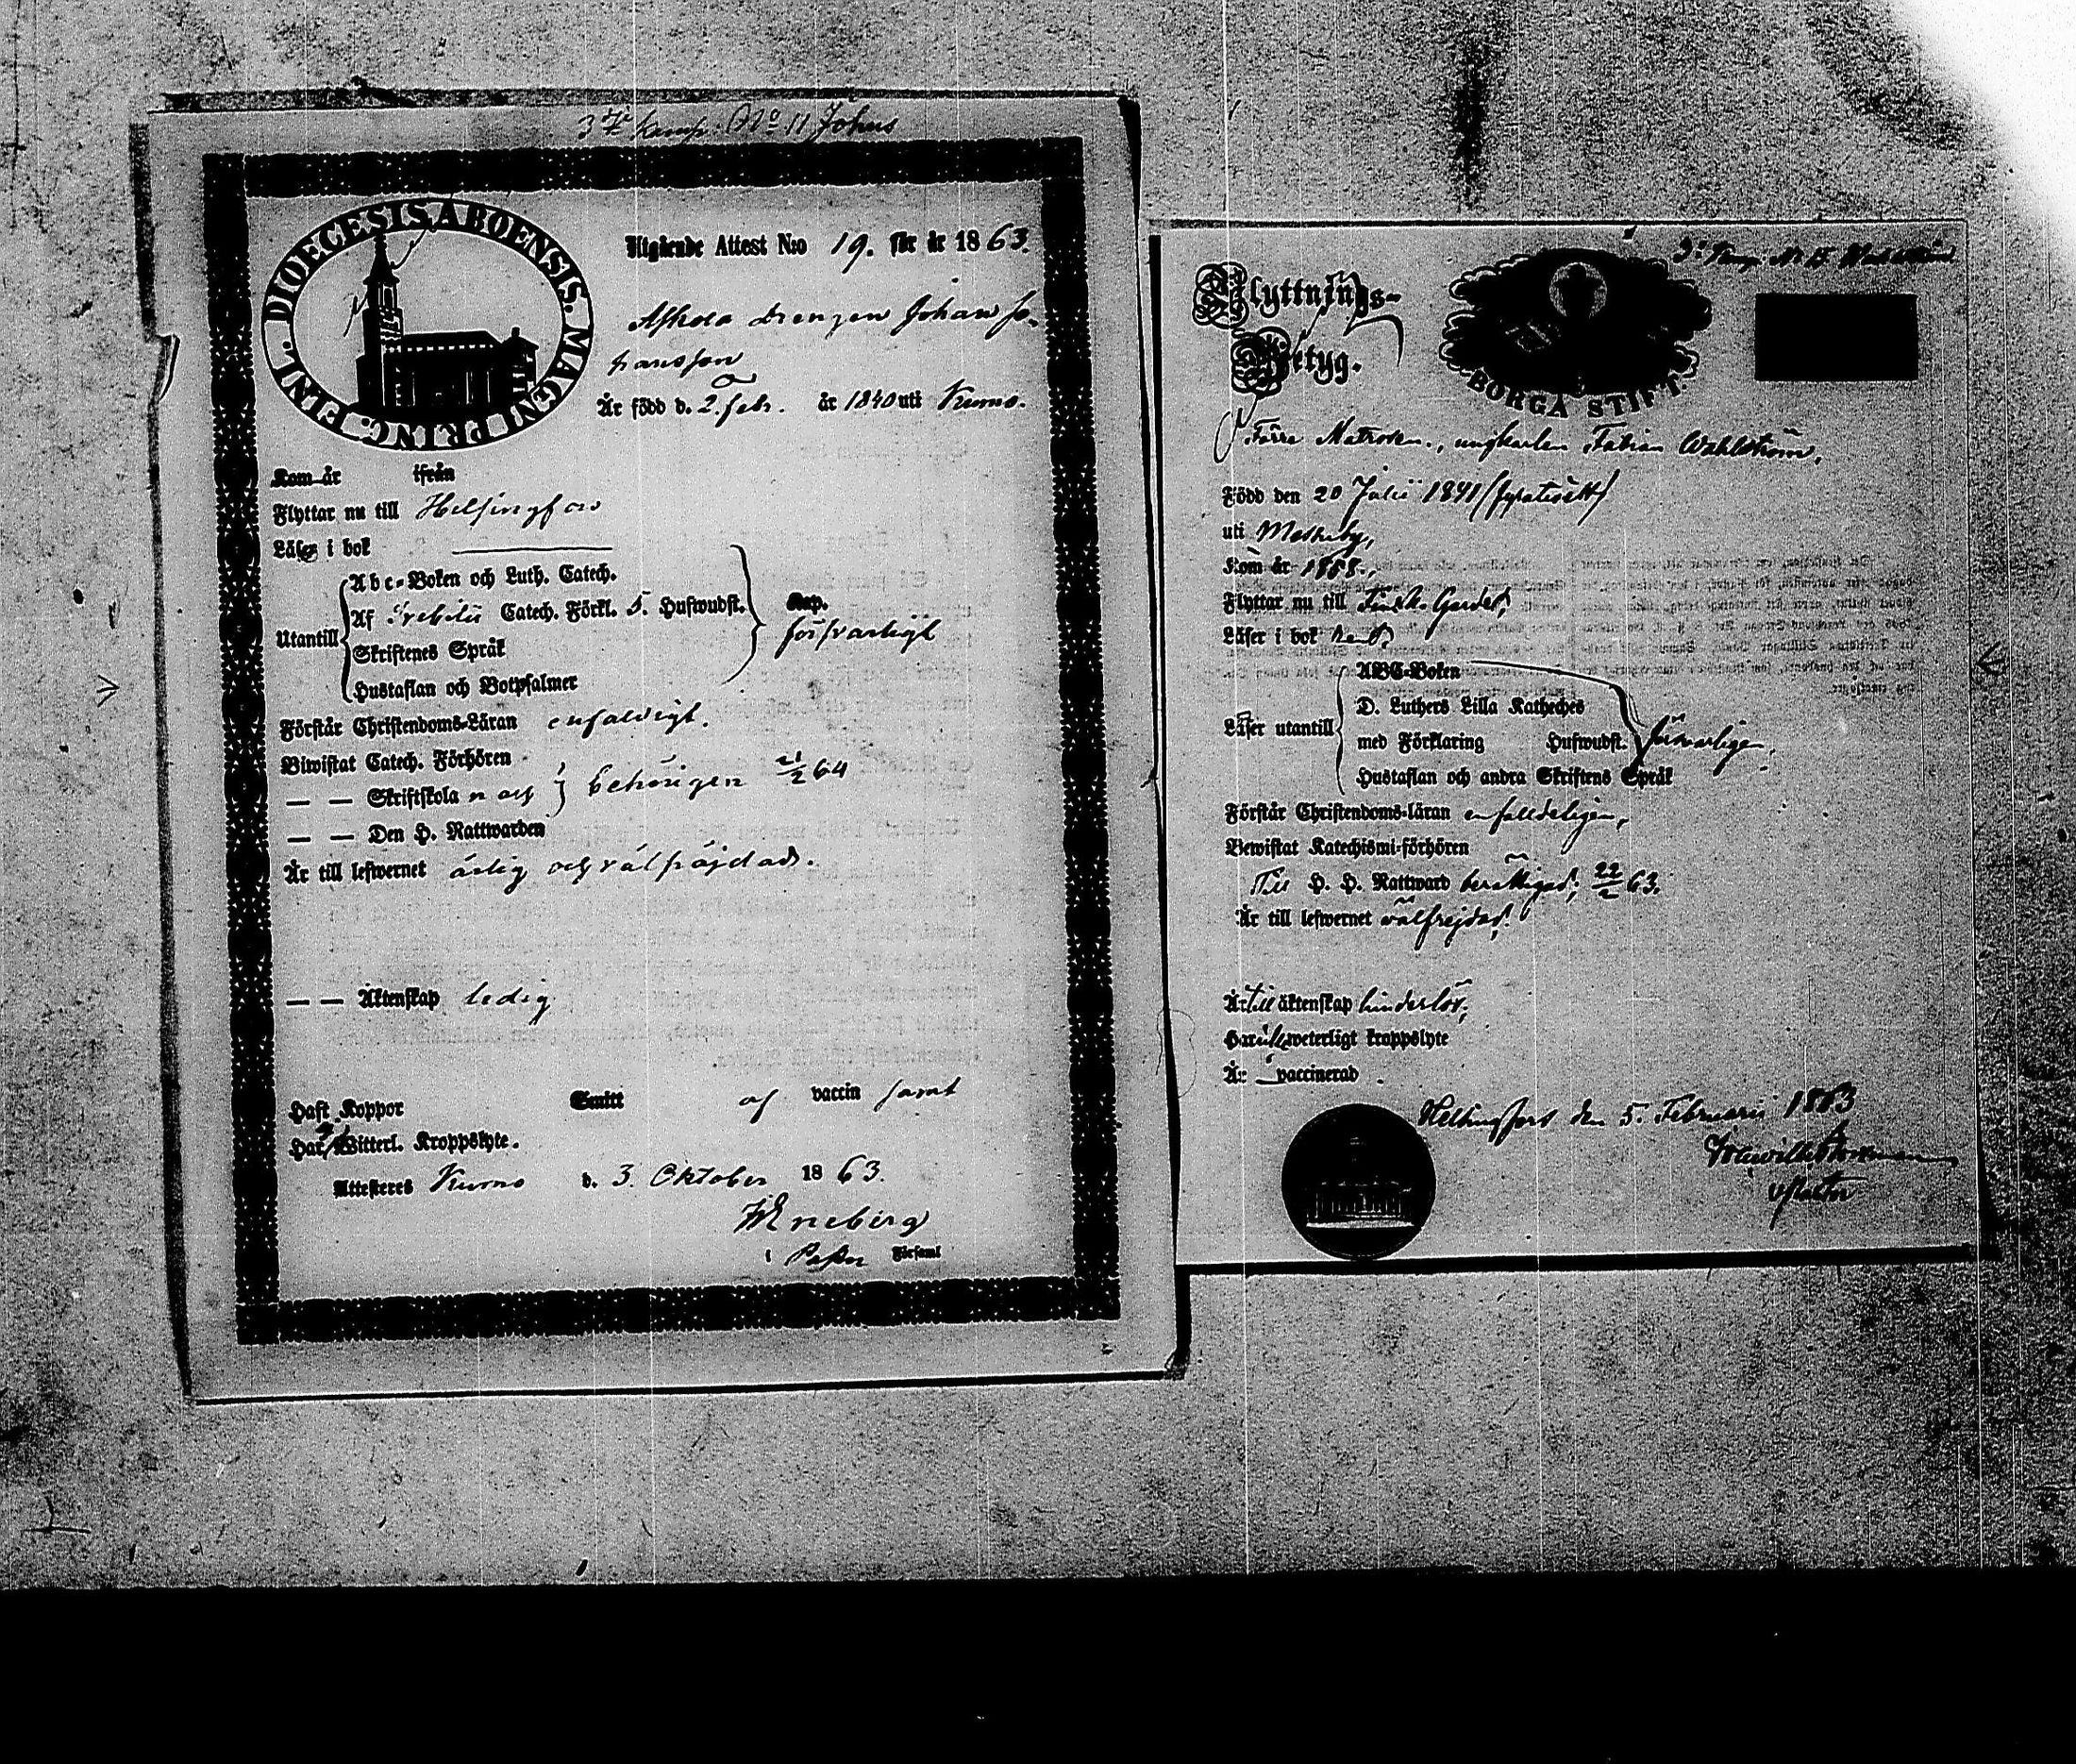 3dje Komp. No 11 Johns
DIOECESIS ABOENSIS. MAGNI PRINC. FINL.
Utgående Attest N:o 19. för år 1863.
Drengen Johan Jo-
hansson
Är född d. 2. febr. år 1840 uti Kumo.
Kom år ifrån
Flyttar nu till Helsingfors
Läser i bok
Abc-Boken och Luth. Catech.
Af Svebilii Catech. Förkl. 5. Hufwudst.
Utantill
Skriftenes Språk
Hustaflan och Botpsalmer
Kap.
försvarligt
Förstår Christendoms-Läran enfaldigt.
Biwistat Catech. Förhören
— — Skriftskola n och behörigen 21/2 64
— — Den H. Nattwarden
Är till lefwernet ärlig och välfräjdad.
— — Äktenskap ledig
Haft Koppor Smitt af vaccin samt
Har ej Witterl. Kroppslyte.
Attesteres Kumo d. 3. Oktober 1863.
Eneberg
i Pastor Församl
3e Komp. No 15 Wahlström
Flyttnings-
Betyg.
BORGÅ STIFT.
Förre Matrosen, ungkarlen Fabian Wahlström,
Född den 20 Julii 1841 (fyrationett)
uti Moskuby,
Kom år 1858.,
Flyttar nu till Finska Gardet,
Läser i bok rent,
ABC-Boken
D. Luthers Lilla Katheches
Läser utantill
med Förklaring Hufwudst. försvarligen,
Hustaflan och andra Skriftens Språk
Förstår Christendoms-läran enfalldeligen,
Bewistat Katechismi-förhören
Till H. H. Nattward berättigad; 22/2 63.
Är till lefwernet välfrejdad.
Är till äktenskap hinderlös,
Har icke weterligt kroppslyte
Är vaccinerad.
Helsingfors den 5. Februarii 1863
v. Pastor